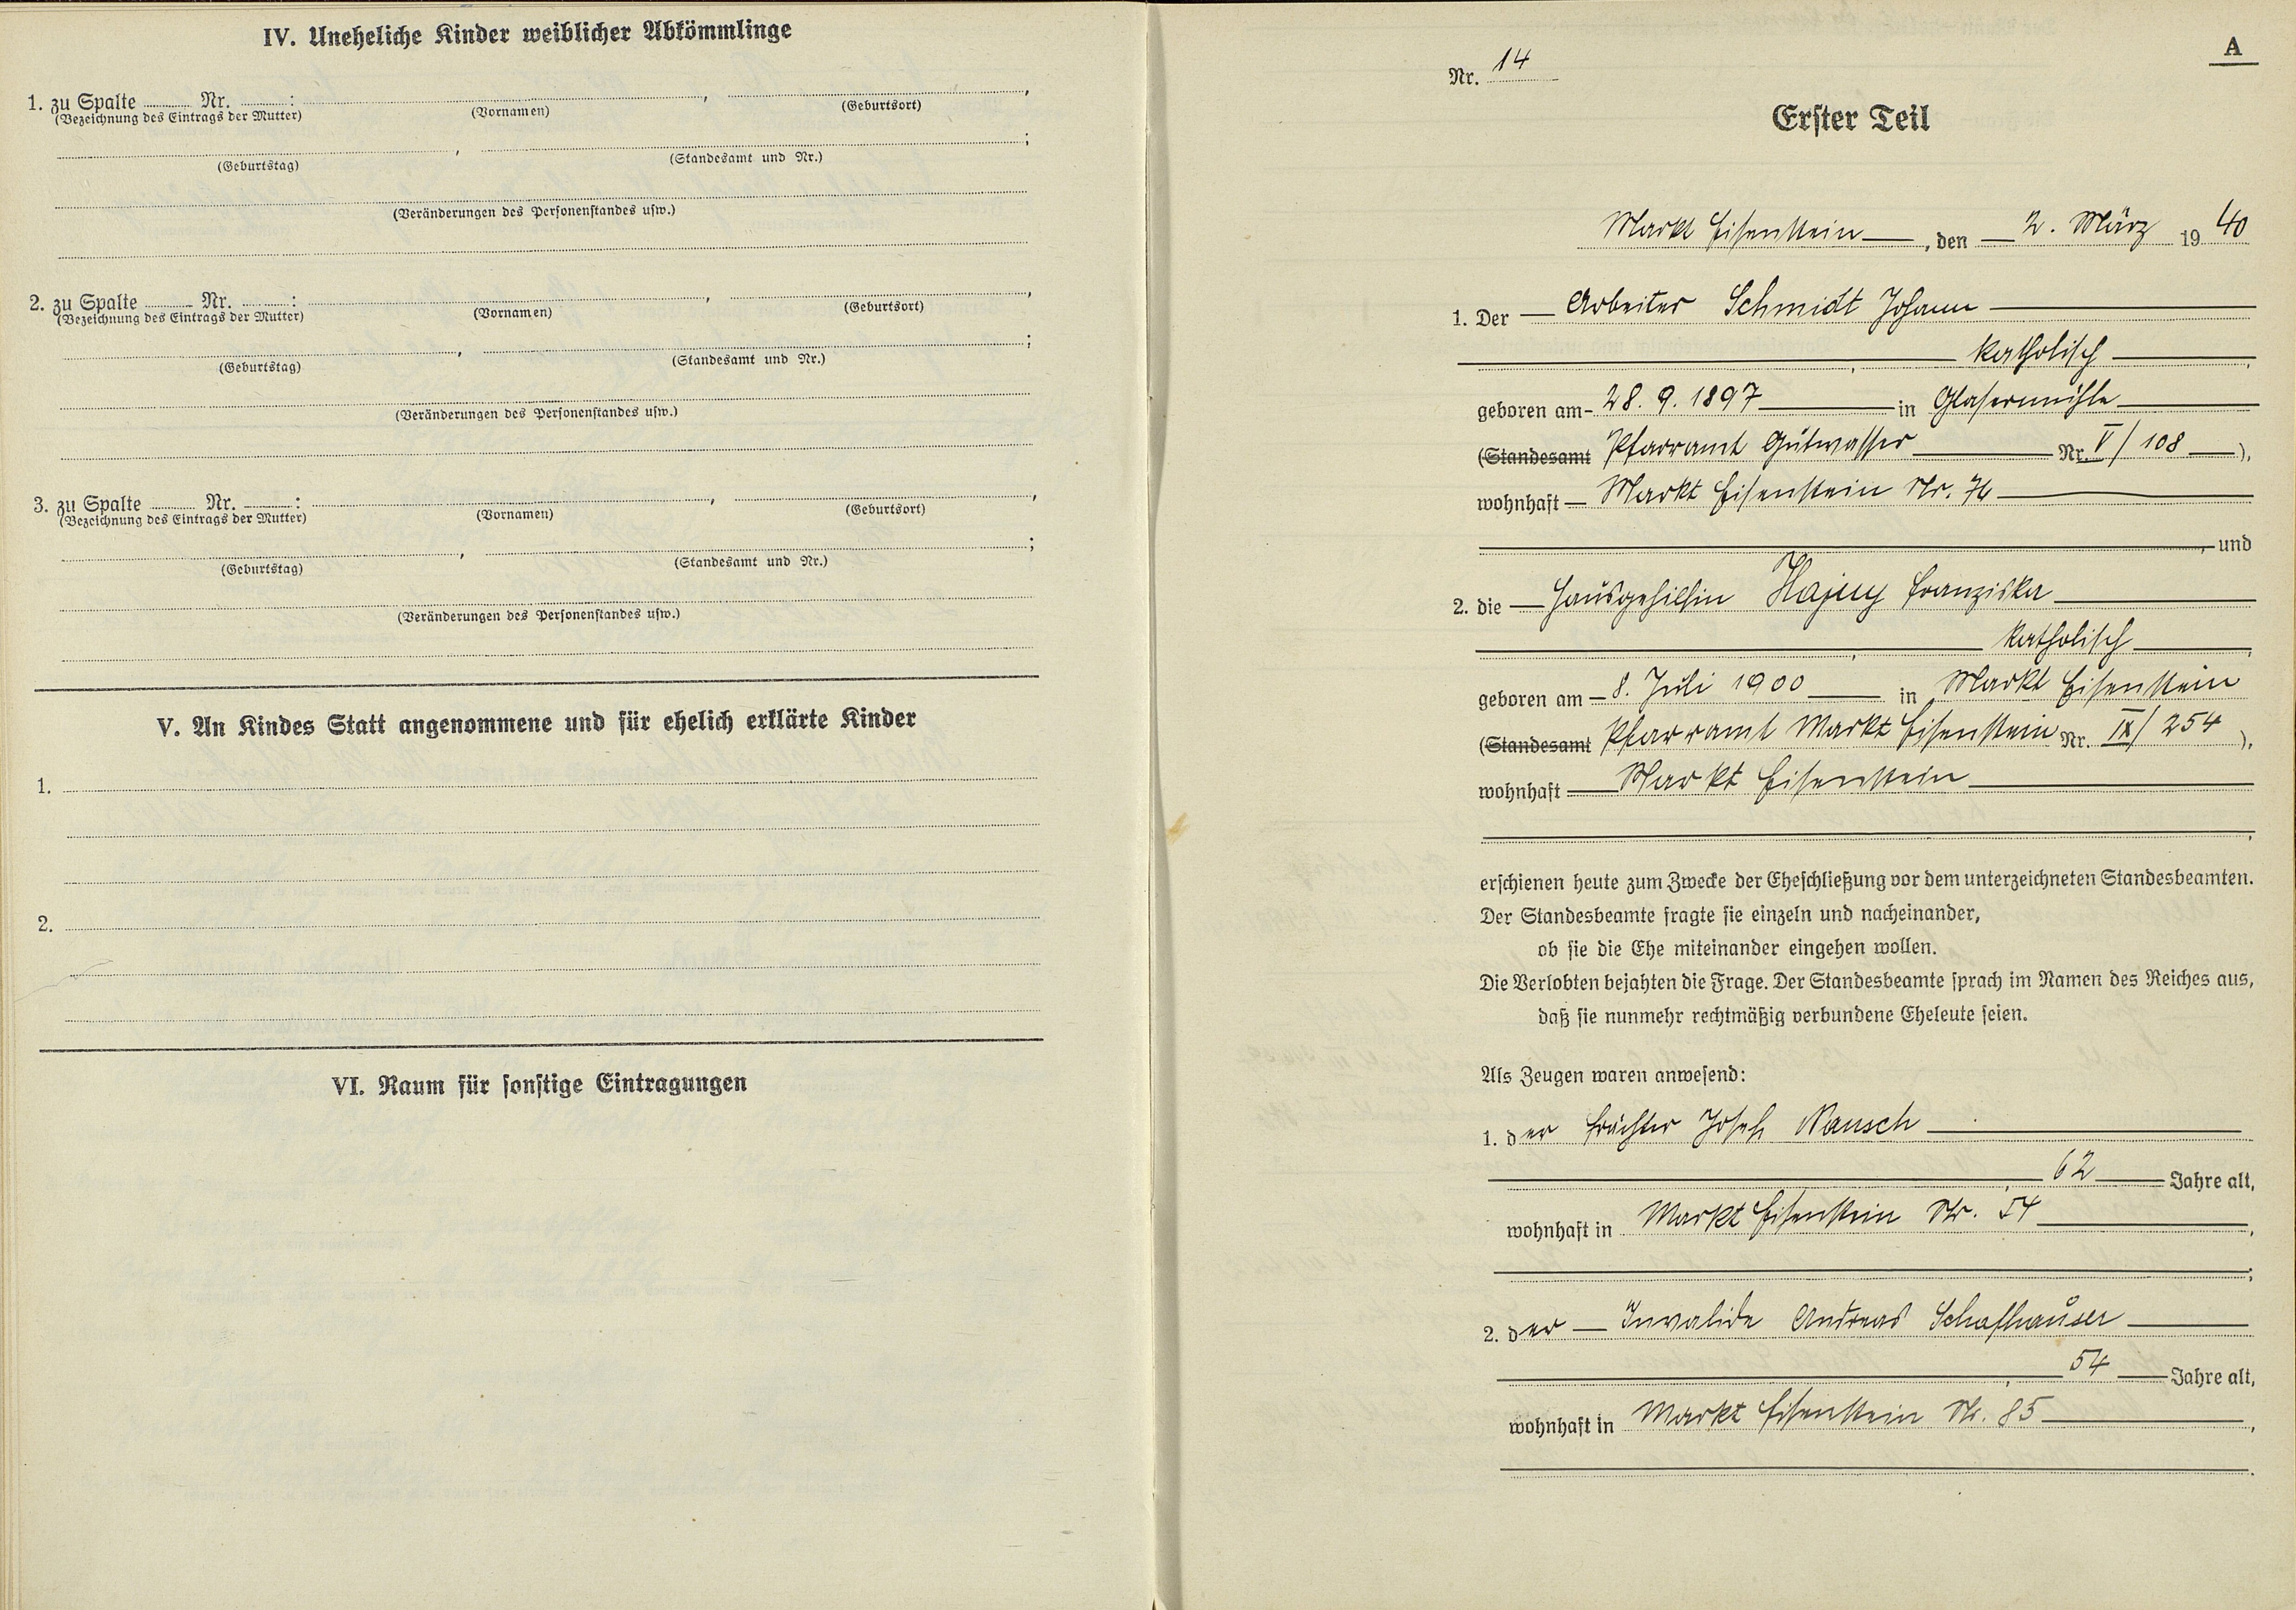 IV. Uneheliche Kinder weiblicher Abkömmlinge
1. zu Spalte ........ Nr. ........: ........, ........,
(Bezeichnung des Eintrags der Mutter) (Vornamen) (Geburtsort)
........, ........;
(Geburtstag) (Standesamt und Nr.)
(Veränderungen des Personenstandes usw.)
2. zu Spalte ........ Nr. ........: ........, ........,
(Bezeichnung des Eintrags der Mutter) (Vornamen) (Geburtsort)
........, ........;
(Geburtstag) (Standesamt und Nr.)
(Veränderungen des Personenstandes usw.)
3. zu Spalte ........ Nr. ........: ........, ........,
(Bezeichnung des Eintrags der Mutter) (Vornamen) (Geburtsort)
........, ........;
(Geburtstag) (Standesamt und Nr.)
(Veränderungen des Personenstandes usw.)
V. An Kindes Statt angenommene und für ehelich erklärte Kinder
1.
2.
VI. Raum für sonstige Eintragungen
A
Nr. 14
Erster Teil
Markt Eisenstein, den 2. März 1940
1. Der Arbeiter Schmidt Johann
, katholisch,
geboren am 28. 9. 1897 in Glasermühle
(Standesamt Pfarramt Gutwasser Nr. V/108),
wohnhaft Markt Eisenstein Nr. 74
, und
2. die Hausgehilfin Hajny Franziska
, katholisch,
geboren am 8. Juli 1900 in Markt Eisenstein
(Standesamt Pfarramt Markt Eisenstein Nr. IX/254),
wohnhaft Markt Eisenstein
,
erschienen heute zum Zwecke der Eheschließung vor dem unterzeichneten Standesbeamten.
Der Standesbeamte fragte sie einzeln und nacheinander,
ob sie die Ehe miteinander eingehen wollen.
Die Verlobten bejahten die Frage. Der Standesbeamte sprach im Namen des Reiches aus,
daß sie nunmehr rechtmäßig verbundene Eheleute seien.
Als Zeugen waren anwesend:
1. der Josef Rausch
, 62 Jahre alt,
wohnhaft in Markt Eisenstein Nr. 54,
;
2. der Invalide Andreas Schafhauser
, 54 Jahre alt,
wohnhaft in Markt Eisenstein Nr. 85,
.